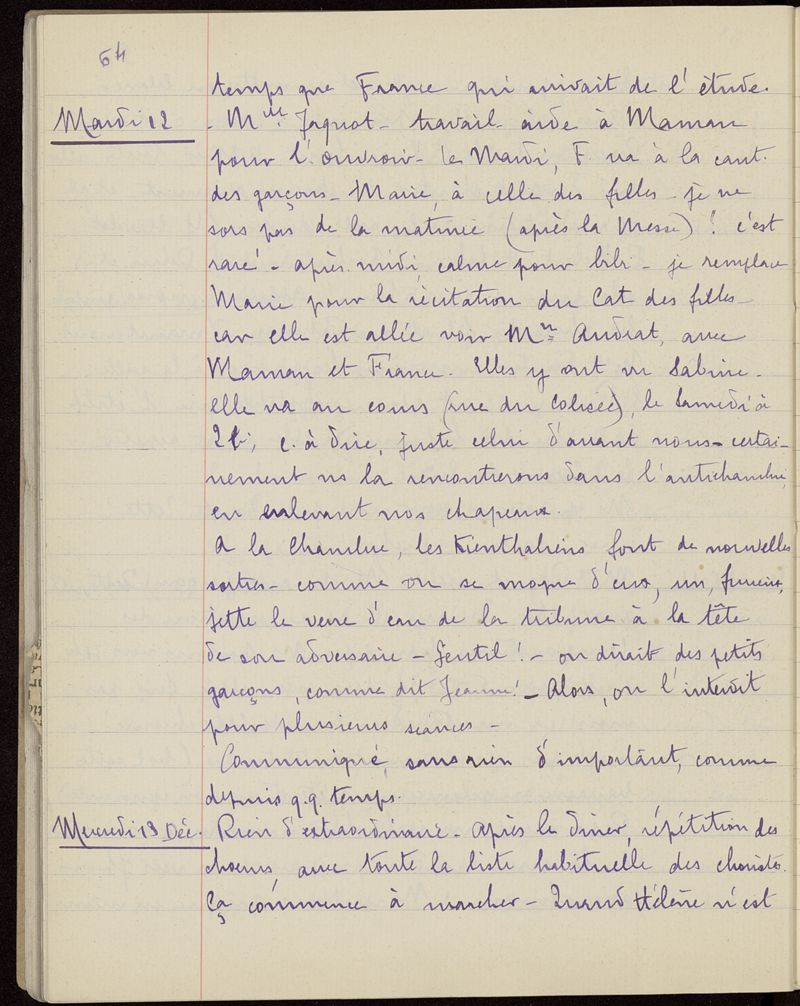 64
temps que France qui arrivait de l'étude.
Mardi 12
- Mlle Jaquot - travail - aide à Maman
pour l'ouvroir - les Mardi, F. va à la cant.
des garçons - Marie, à celle des filles - je ne
sors pas de la matinée (après la Messe) ! c'est
rare ! - après-midi, calme pour bibi - je remplace
Marie pour la récitation du Cat. des filles -
car elle est allée voir Mme Audiat, avec
Maman et France. Elles y ont vu Sabine -
elle va au cours (rue du Colisée), le Samedi à
2h, c. à dire, juste celui d'avant nous - certai-
nement ns la rencontrerons dans l'antichambre,
en enlevant nos chapeaux.
A la Chambre, les Kienthaliens font de nouvelles
sorties - comme on se moque d'eux, un, furieux,
jette le verre d'eau de la tribune à la tête
de son adversaire - Gentil ! - on dirait des petits
garçons, comme dit Jeanne ! - Alors, on l'interdit
pour plusieurs séances -
Communiqué, sans rien d'important, comme
depuis q.q. temps.
Mercredi 13 Déc.
Rien d'extraordinaire - Après le dîner, répétition des
choeurs, avec toute la liste habituelle des
Ça commence à marcher - Quand Hélène n'est